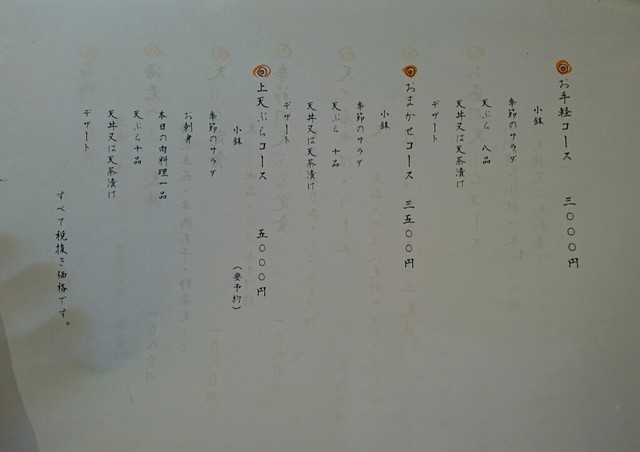 お手軽コース 三〇〇〇円
小鉢
季節のサラダ
天ぷら 八品
天丼又は天茶漬け
デザート
おまかせコース 三五〇〇円
小鉢
季節のサラダ
天ぷら 十品
天丼又は天茶漬け
デザート
上天ぷらコース 五〇〇〇円
(要予約)
小鉢
季節のサラダ
お刺身
本日の肉料理一品
天ぷら十品
天丼又は天茶漬け
デザート
すべて税抜き価格です。